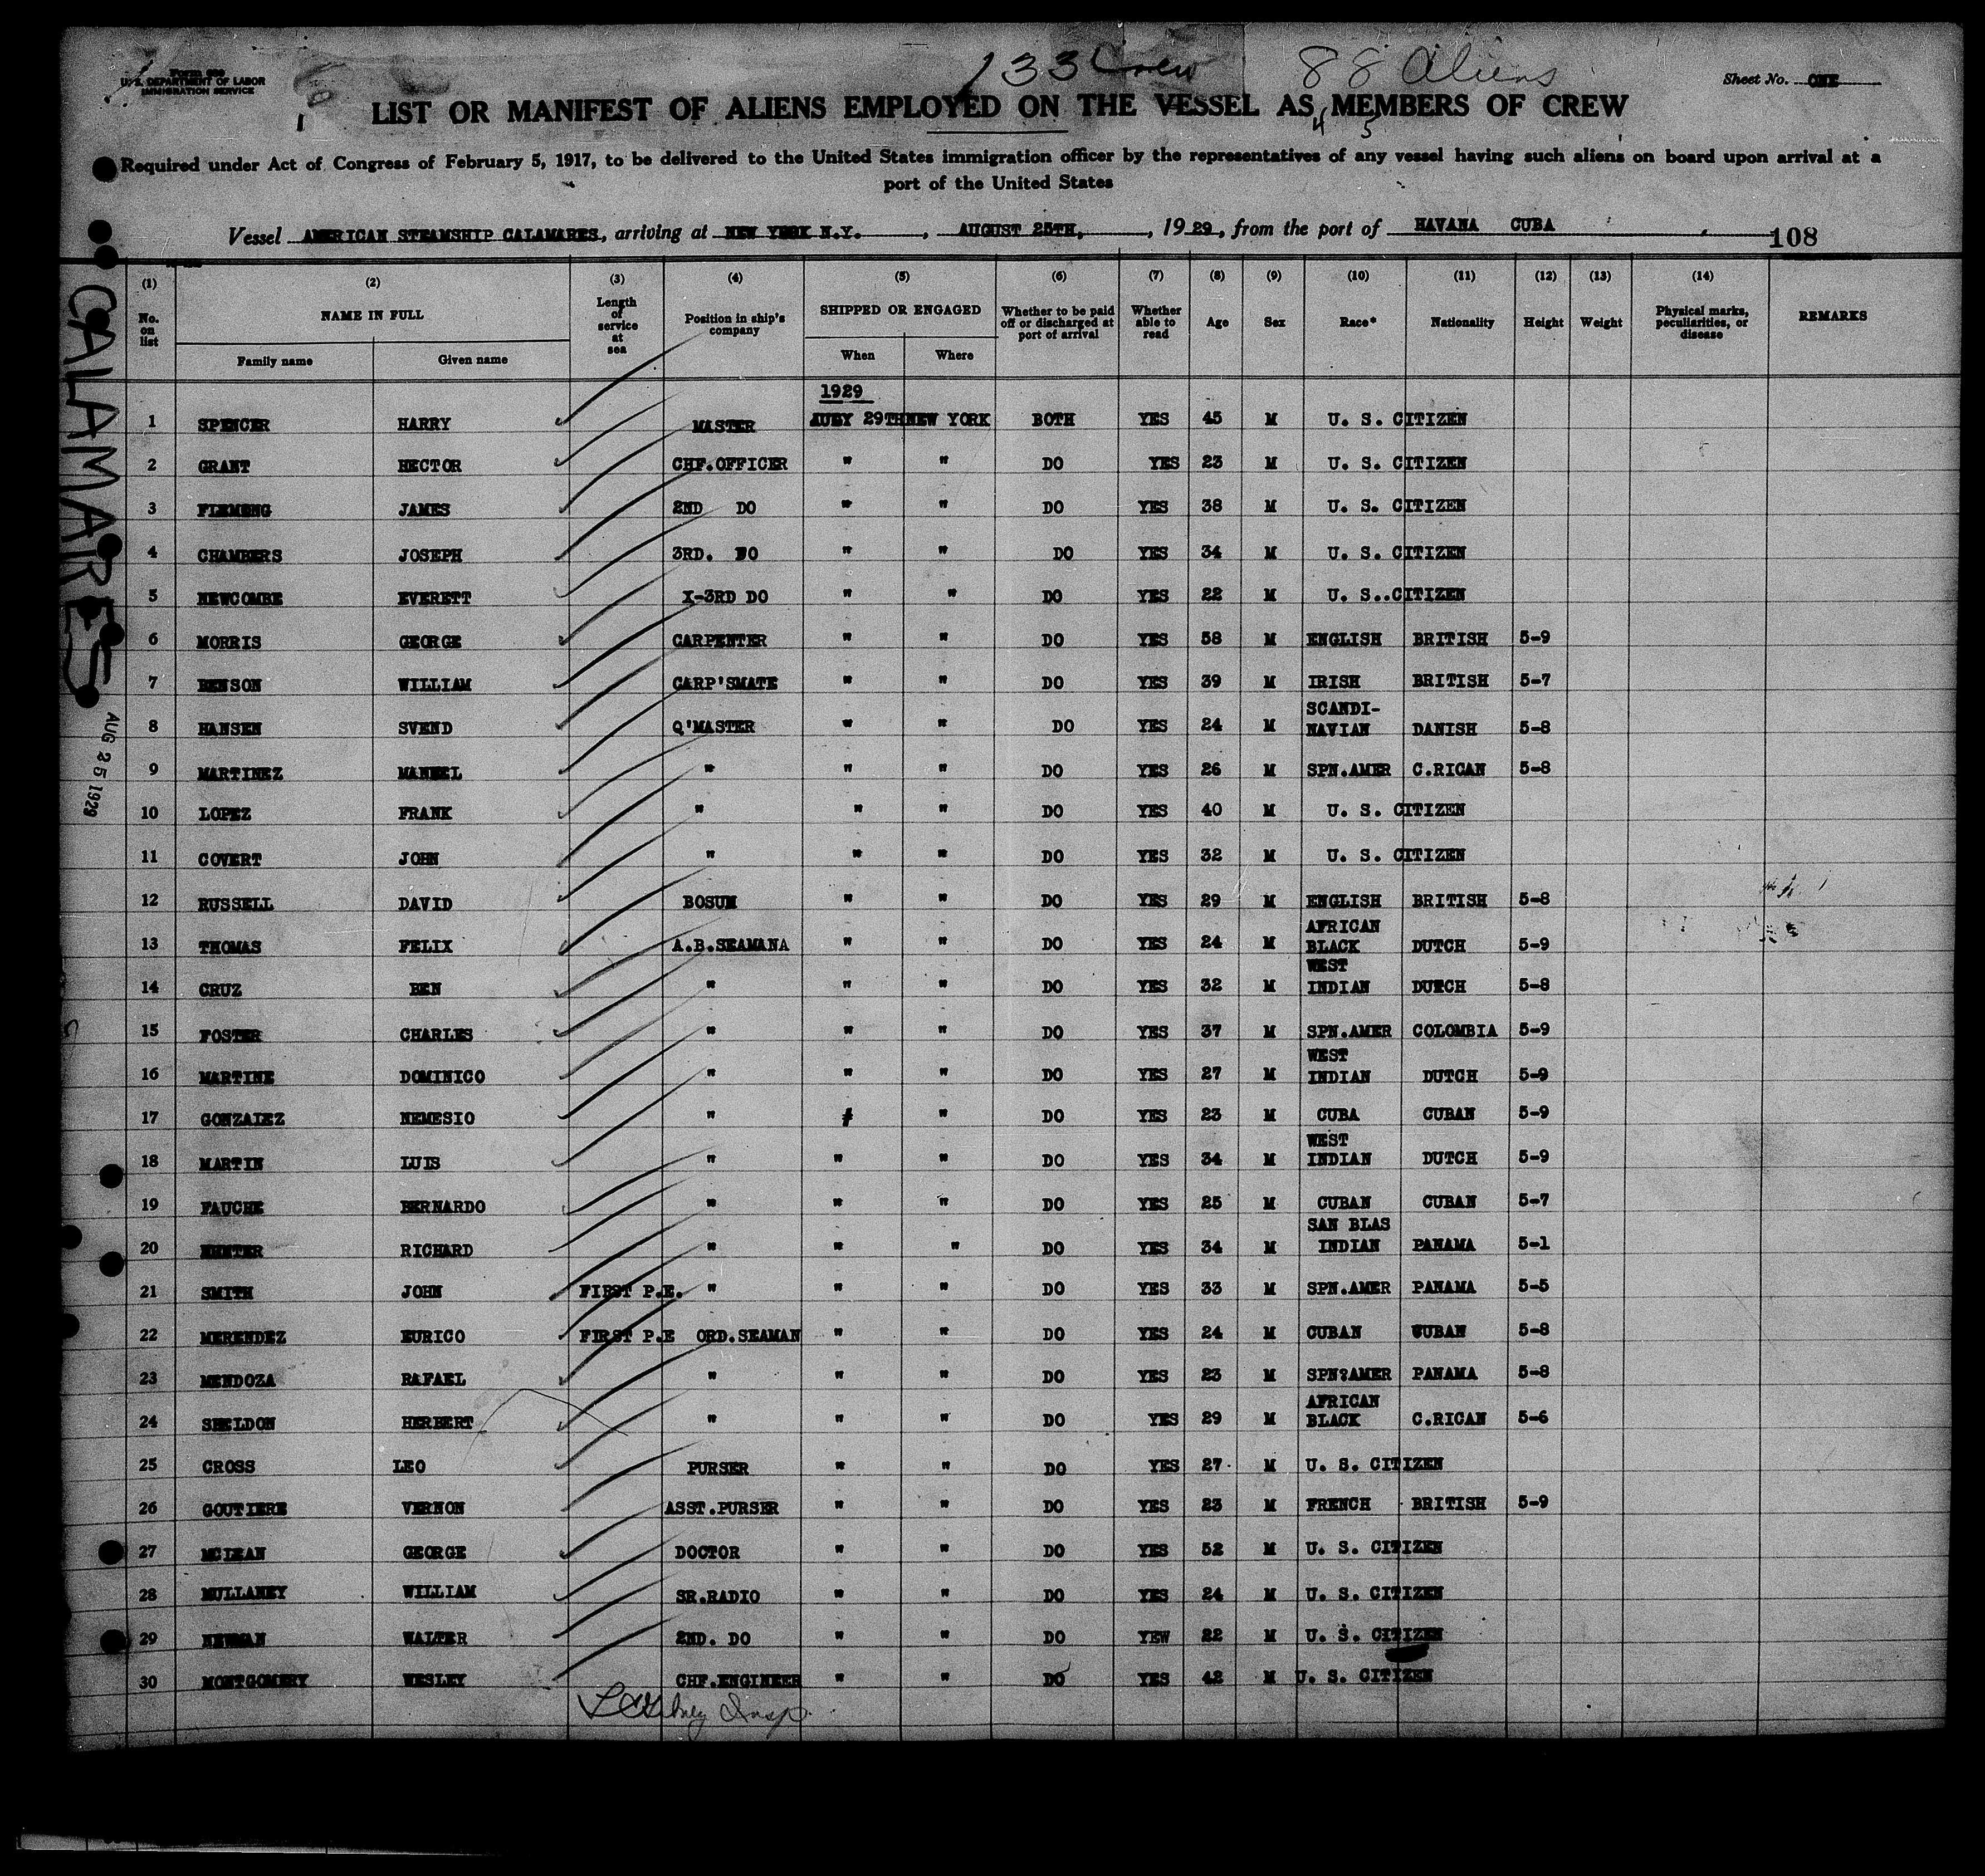 Form 689
U. S. DEPARTMENT OF LABOR
IMMIGRATION SERVICE
133 Crew 88 Aliens
Sheet No. ONE
LIST OR MANIFEST OF ALIENS EMPLOYED ON THE VESSEL AS MEMBERS OF CREW
4 5
Required under Act of Congress of February 5, 1917, to be delivered to the United States immigration officer by the representatives of any vessel having such aliens on board upon arrival at a
port of the United States
Vessel AMERICAN STEAMSHIP CALAMARES, arriving at NEW YORK N.Y. , AUGUST 25TH, , 1929, from the port of HAVANA CUBA
108
CALAMARES
AUG 25 1929
(1) (2) (3) (4) (5) (6) (7) (8) (9) (10) (11) (12) (13) (14)
No. on list NAME IN FULL Family name Given name Length of service at sea Position in ship's company SHIPPED OR ENGAGED When Where Whether to be paid off or discharged at port of arrival Whether able to read Age Sex Race* Nationality Height Weight Physical marks, peculiarities, or disease REMARKS
1929
1 SPENCER HARRY MASTER JULY 29TH NEW YORK BOTH YES 45 M U. S. CITIZEN
2 GRANT HECTOR CHF.OFFICER " " DO YES 23 M U. S. CITIZEN
3 FLEMING JAMES 2ND DO " " DO YES 38 M U. S. CITIZEN
4 CHAMBERS JOSEPH 3RD. DO " " DO YES 34 M U. S. CITIZEN
5 NEWCOMBE EVERETT X-3RD DO " " DO YES 22 M U. S..CITIZEN
6 MORRIS GEORGE CARPENTER " " DO YES 58 M ENGLISH BRITISH 5-9
7 BENSON WILLIAM CARP'SMATE " " DO YES 39 M IRISH BRITISH 5-7
8 HANSEN SVEND Q'MASTER " " DO YES 24 M SCANDI-NAVIAN DANISH 5-8
9 MARTINEZ MANUEL " " " DO YES 26 M SPN.AMER C.RICAN 5-8
10 LOPEZ FRANK " " " DO YES 40 M U. S. CITIZEN
11 COVERT JOHN " " " DO YES 32 M U. S. CITIZEN
12 RUSSELL DAVID BOSUN " " DO YES 29 M ENGLISH BRITISH 5-8
13 THOMAS FELIX A.B.SEAMANA " " DO YES 24 M AFRICAN BLACK DUTCH 5-9
14 CRUZ BEN " " " DO YES 32 M WEST INDIAN DUTCH 5-8
15 FOSTER CHARLES " " " DO YES 37 M SPN.AMER COLOMBIA 5-9
16 MARTINE DOMINICO " " " DO YES 27 M WEST INDIAN DUTCH 5-9
17 GONZALEZ NEMESIO " " " DO YES 23 M CUBA CUBAN 5-9
18 MARTIN LUIS " " " DO YES 34 M WEST INDIAN DUTCH 5-9
19 FAUCHE BERNARDO " " " DO YES 25 M CUBAN CUBAN 5-7
20 RICHARD " " " DO YES 34 M SAN BLAS INDIAN PANAMA 5-1
21 SMITH JOHN FIRST P.E. " " " DO YES 33 M SPN.AMER PANAMA 5-5
22 MERENDEZ EURICO FIRST P.E ORD.SEAMAN " " DO YES 24 M CUBAN CUBAN 5-8
23 MENDOZA RAFAEL " " " DO YES 23 M SPN?AMER PANAMA 5-8
24 SHELDON HERBERT " " " DO YES 29 M AFRICAN BLACK C.RICAN 5-6
25 CROSS LEO PURSER " " DO YES 27 M U. S. CITIZEN
26 GOUTIERE VERNON ASST.PURSER " " DO YES 23 M FRENCH BRITISH 5-9
27 MCLEAN GEORGE DOCTOR " " DO YES 52 M U. S. CITIZEN
28 MULLANEY WILLIAM SR.RADIO " " DO YES 24 M U. S. CITIZEN
29 NEWMAN WALTER 2ND. DO " " DO YEW 22 M U. S. CITIZEN
30 MONTGOMERY WESLEY CHF.ENGINEER " " DO YES 42 M U. S. CITIZEN
Insp.